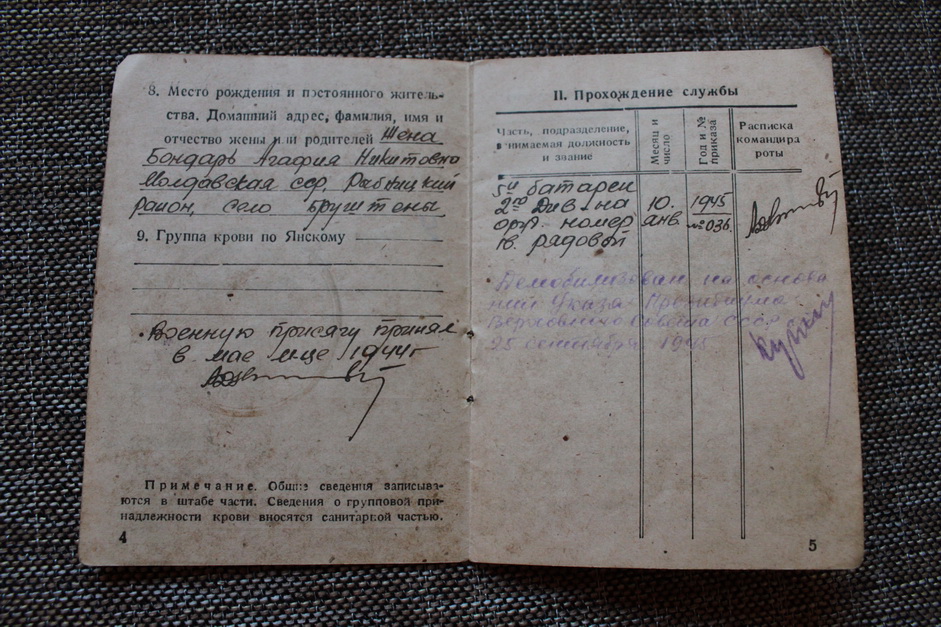 8. Место рождения и постоянного житель-
ства. Домашний адрес, фамилия, имя и
отчество жены или родителей Жена
Бондарь Агафия Никитовна
Молдавская сср, Рабницкий
район, село Бруштены
9. Группа крови по Янскому
Военную присягу принял
в мае м-це 1944г
Примечание. Общие сведения записыва-
ются в штабе части. Сведения о групповой при-
надлежности крови вносятся санитарной частью.
4
II. Прохождение службы
Часть, подразделение,
занимаемая должность
и звание
Месяц и
число
Год и №
приказа
Расписка
командира
роты
5й батареи
2го Див-на 10. 1945
номер янв. №036.
рядовой
Демобилизован на основа
нии Указа Президиума
Верховного Совета СССР
25 сентября 1945
5